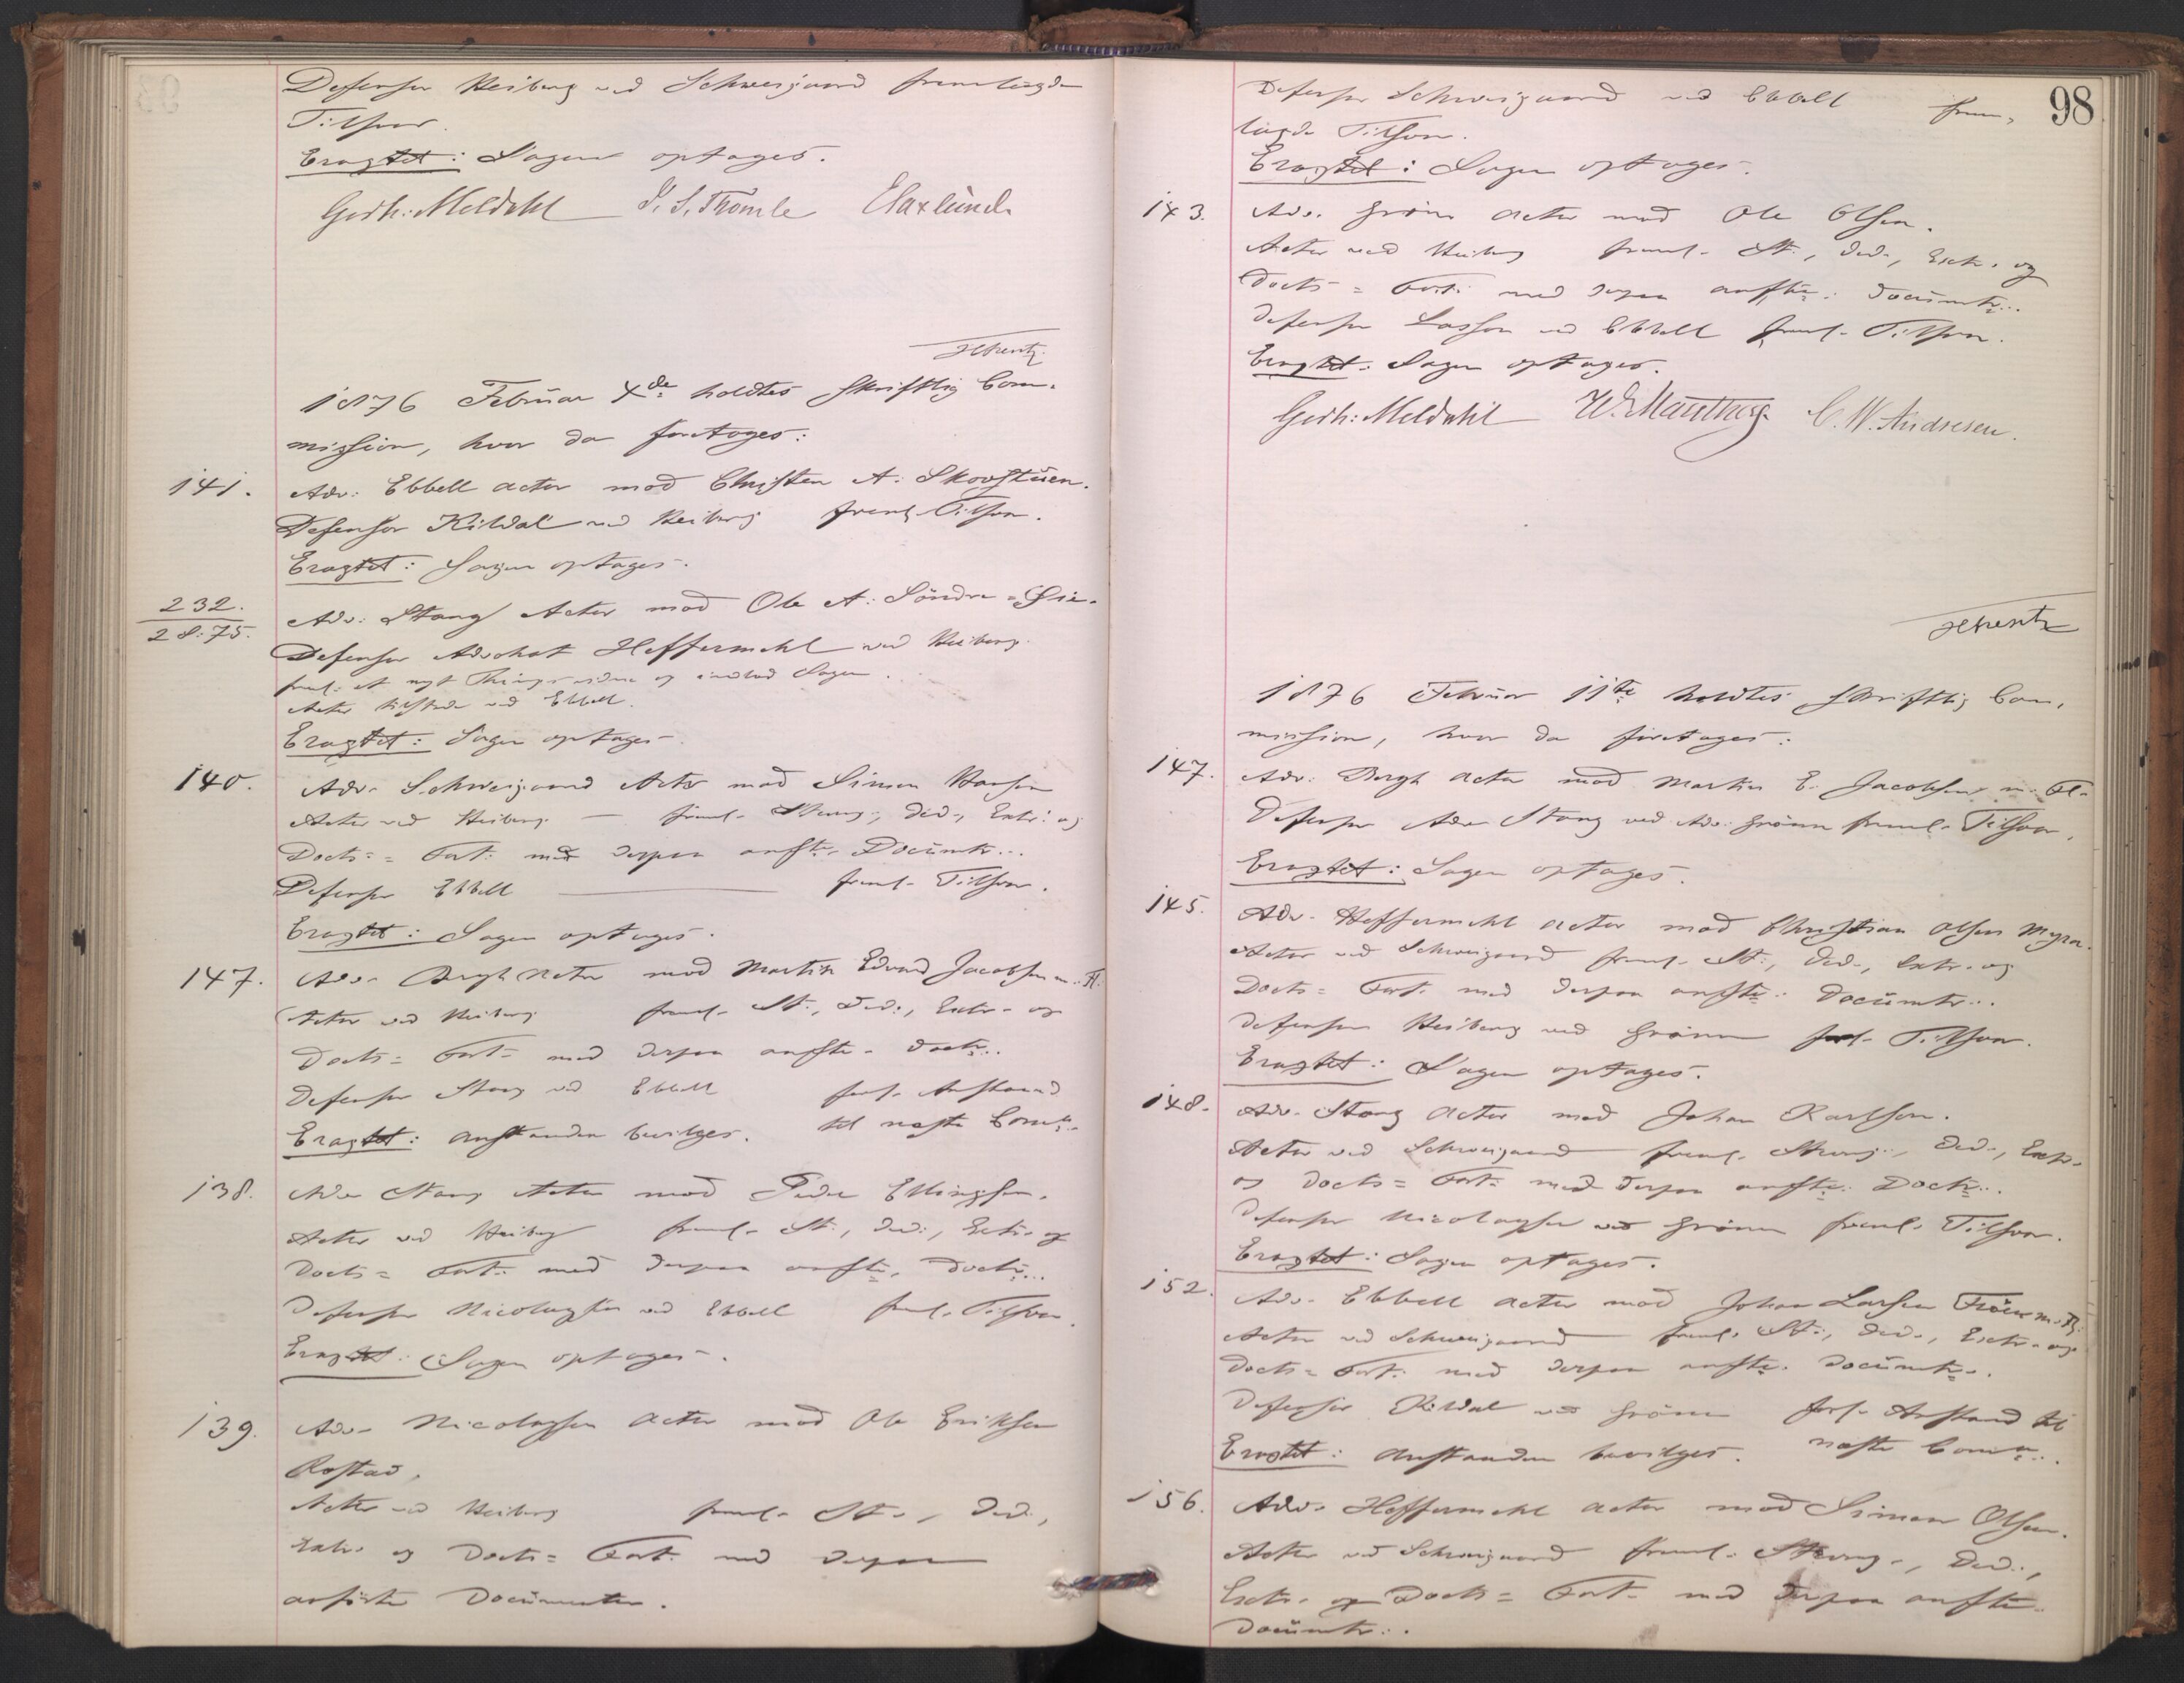 Defensor Heiberg ved Schweigaard fremlagde
Tilsvar.
Eragtet: Sagen optages.
Gerh: Meldahl J. S. Thomle E Saxlund
1876 Februar 4de holdtes skriftlig Com-
mission, hvor da foretoges:
141. Adv: Ebbell Actor mod Christen A. Skovstuen.
Defensor Kildal ved Heiberg freml Tilsvar.
Eragtet: Sagen optages.
232.
28:75. Adv: Stang Actor mod Ole A: Söndre =
Defensor Advokat Heffermehl ved Heiberg
freml. et nyt Thingsvidne og indlod Sagen.
Actor tilstede ved Ebbell.
Eragtet: Sagen optages.
140. Adv. Schweigaard Actor mod Simen Hansen
Actor ved Heiberg — freml. Stevng:, Ded., Extr: og
Docts: = Fort: med derpaa anfte. Documtr...
Defensor Ebbell — freml. Tilsvar.
Eragtet: Sagen optages.
147. Adv. Bergh Actor mod Martin Edvard Jacobsen m. Fl.
Actor ved Heiberg freml. St., Ded., Extr. og
Docts = Fort. med derpaa anfte. Doctr...
Defensor Stang ved Ebbell forl. Anstand
Eragtet: Anstanden bevilges. til næste Comn.
138. Adv Stang Actor mod Peder Ellingsen.
Actor ved Heiberg freml. St., Ded., Extr. og
Docts = Fort. med derpaa anfte. Doctr...
Defensor Nicolaysen ved Ebbell freml. Tilsvar.
Eragtet: Sagen optages.
139. Adv. Nicolaysen Actor mod Ole Eriksen
Rostad.
Actor ved Heiberg freml. St., Ded.,
Extr. og Docts = Fort. med derpaa
anförte Documenter.
98
Defensor Schweigaard ved Ebbell frem-
lagde Tilsvar.
Eragtet: Sagen optages.
143. Adv. Grönn Actor mod Ole Olsen.
Actor ved Heiberg freml. St., Ded., Extr. og
Docts = Fort. med derpaa anfte. Documtr...
Defensor Lasson ved Ebbell freml. Tilsvar.
Eragtet: Sagen optages.
Gerh: Meldahl W. Manthey C. W. Andresen.
1876 Februar 11te holdtes skriftlig Com-
mission, hvor da foretoges:
147. Adv: Bergh Actor mod Martin E. Jacobsen m. Fl.
Defensor Adv Stang ved Adv. Grönn freml. Tilsvar.
Eragtet: Sagen optages.
145. Adv. Heffermehl Actor mod Christian Olsen Myra.
Actor ved Schweigaard freml. St., Ded., Extr. og
Docts = Fort. med derpaa anfte. Documtr...
Defensor Heiberg ved Grönn freml. Tilsvar.
Eragtet: Sagen optages.
148. Adv. Stang Actor mod Johan Karlsen.
Actor ved Schweigaard freml. Stevng:, Ded., Extr.
og Docts = Fort. med derpaa anfte. Doctr...
Defensor Nicolaysen ved Grönn freml. Tilsvar.
Eragtet: Sagen optages.
152. Adv. Ebbell Actor mod Johan Larsen m. Fl.
Actor ved Schweigaard freml. St., Ded., Extr. og
Docts = Fort. med derpaa anfte. Documtr..
Defensor Kildal ved Grönn forl. Anstand til
Eragtet: Anstanden bevilges. næste Comn...
156. Adv. Heffermehl Actor mod Simon Olsen.
Actor ved Schweigaard freml. Stevng., Ded.,
Extr. og Docts = Fort. med derpaa anfte.
Documtr..